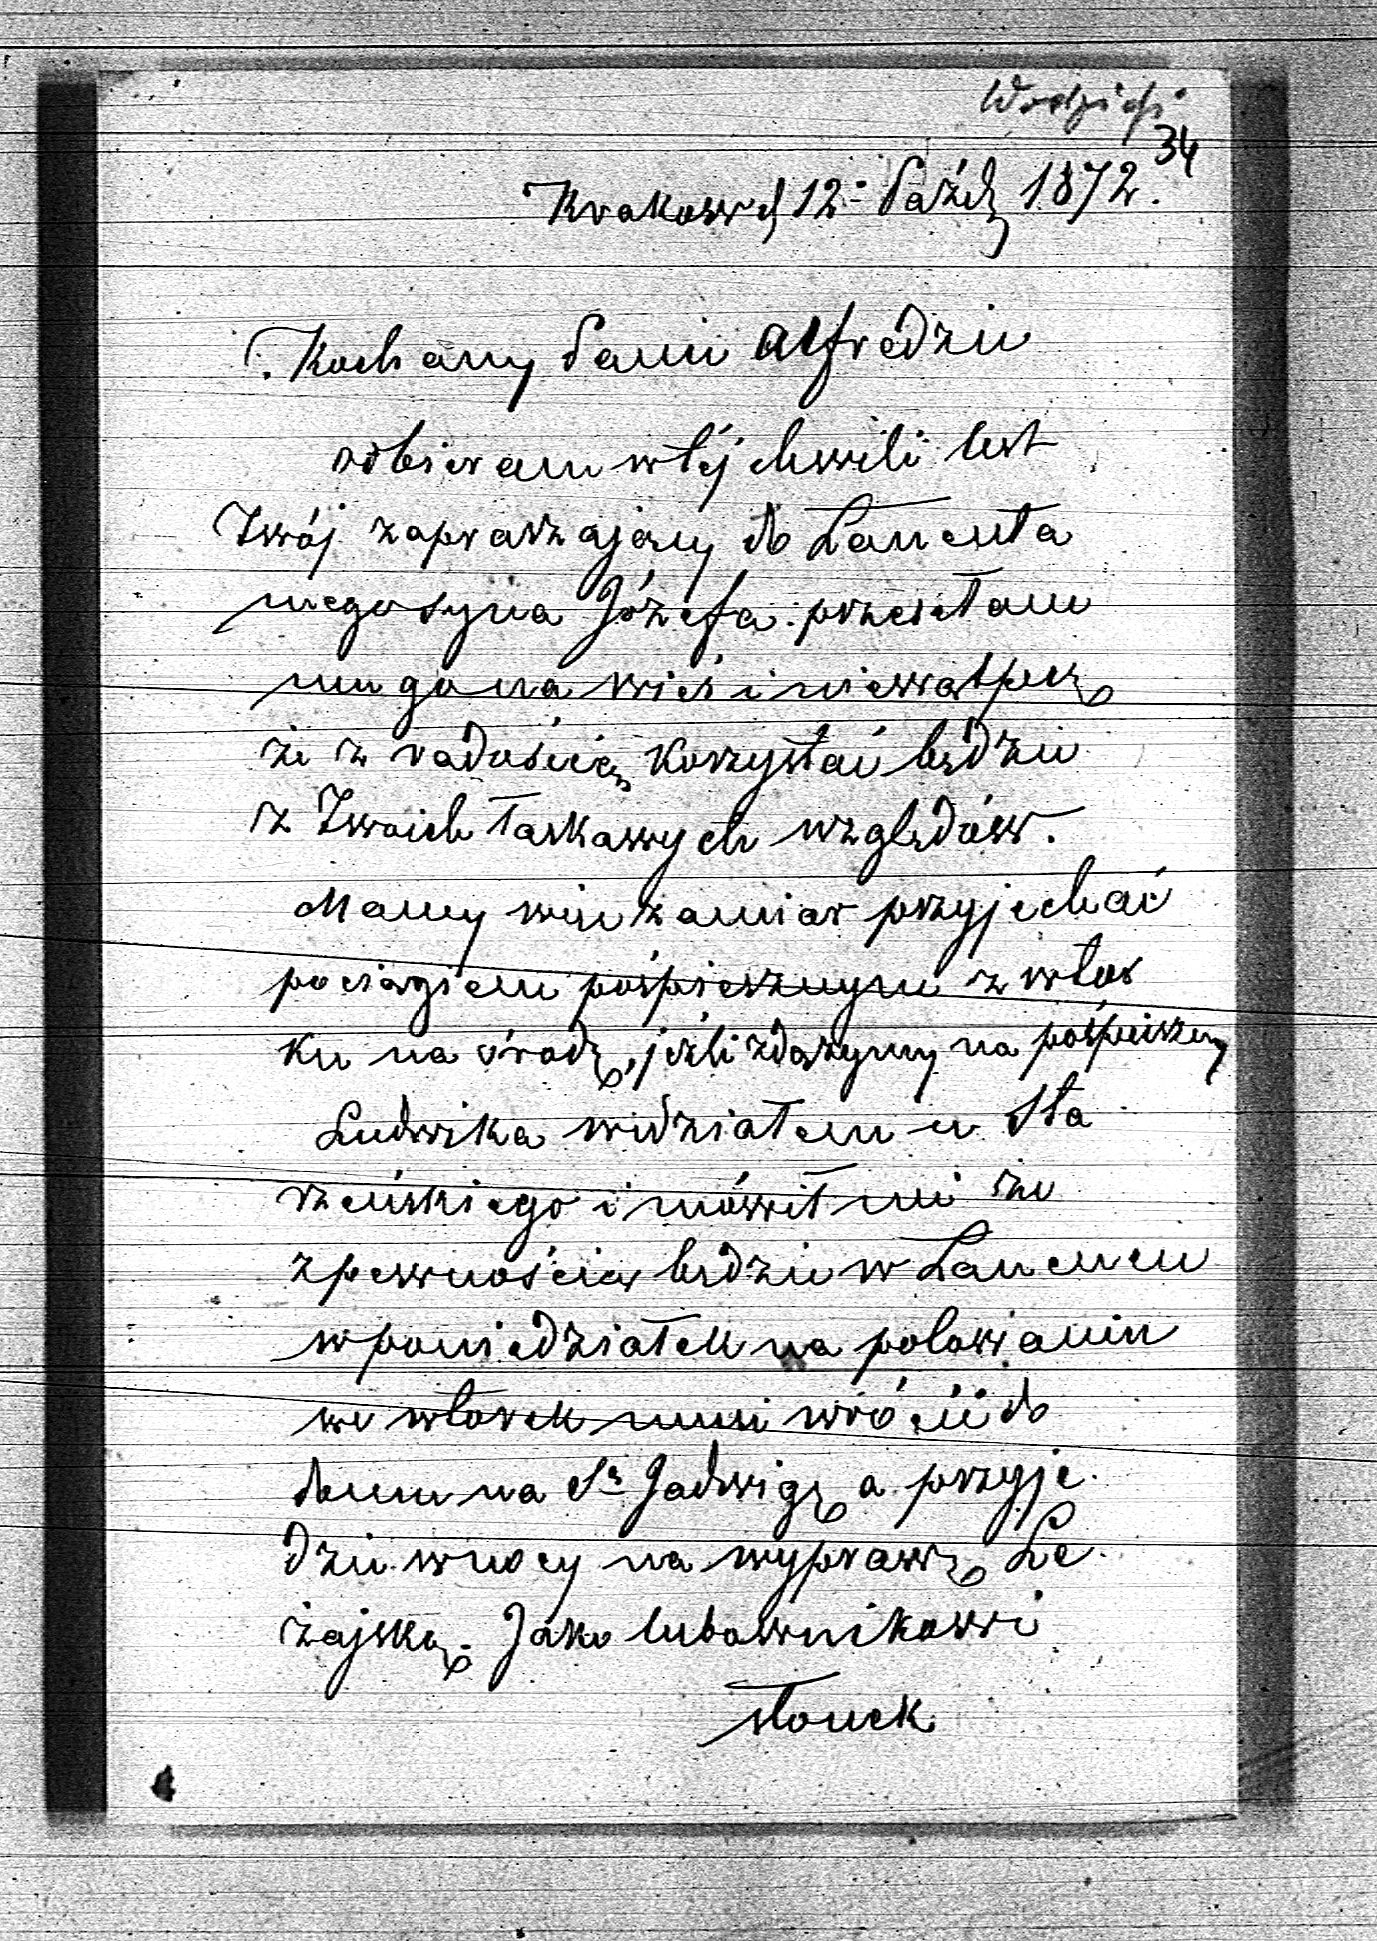 Wodzicki
34
Kraków d 12 Paźdz 1872.
Kochany Panie Alfredzie
odbieram w téj chwili list
Twój zapraszający do Łańcuta
mego syna Józefa: przesełam
mu go na wieś i niewątpię
że z radością korzystać będzie
z Twoich łaskawych względów.
Mamy więc zamiar przyjechać
pociągiem pośpiesznym z wtor
ku na środę, jeźli zdążymy na pośpieszny
Ludwika widziałem u Sta
rzeńskiego i mówił mi że
z pewnością będzie w Łańcucu
w poniedziałek na polowaniu
we wtorek musi wrócić do
domu na Są Jadwigę a przyje
dzie w nocy na wyprawę Le
żajską. Jako lubownikowi
słonek